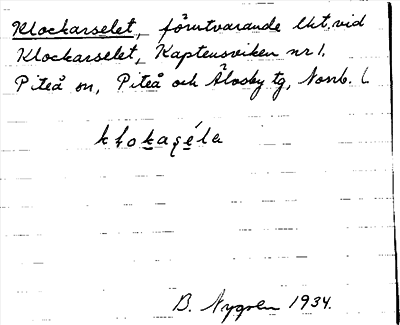 Klockarselet, förutvarande lht. vid
Klockarselet, Kaptensviken nr 1.
Piteå sn, Piteå och Älvsby tg, Norrb. l.
B. Nygren 1934.